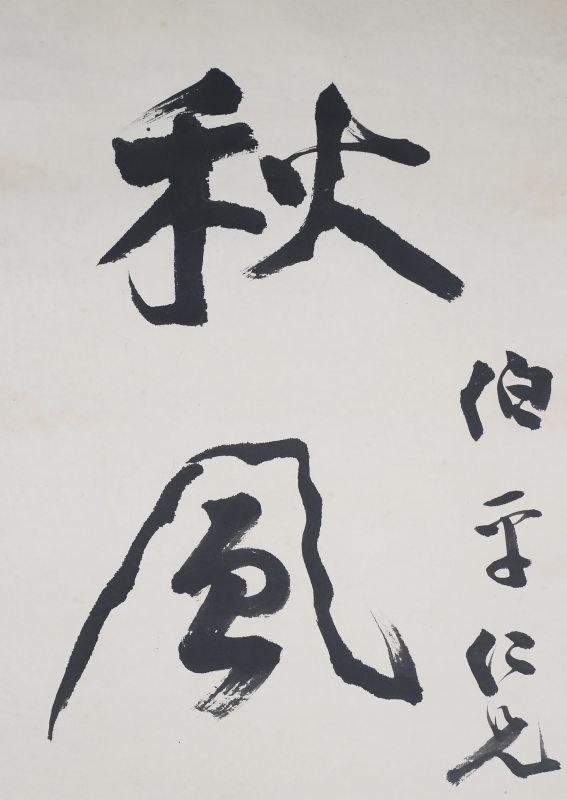 伯平仁兄
秋風